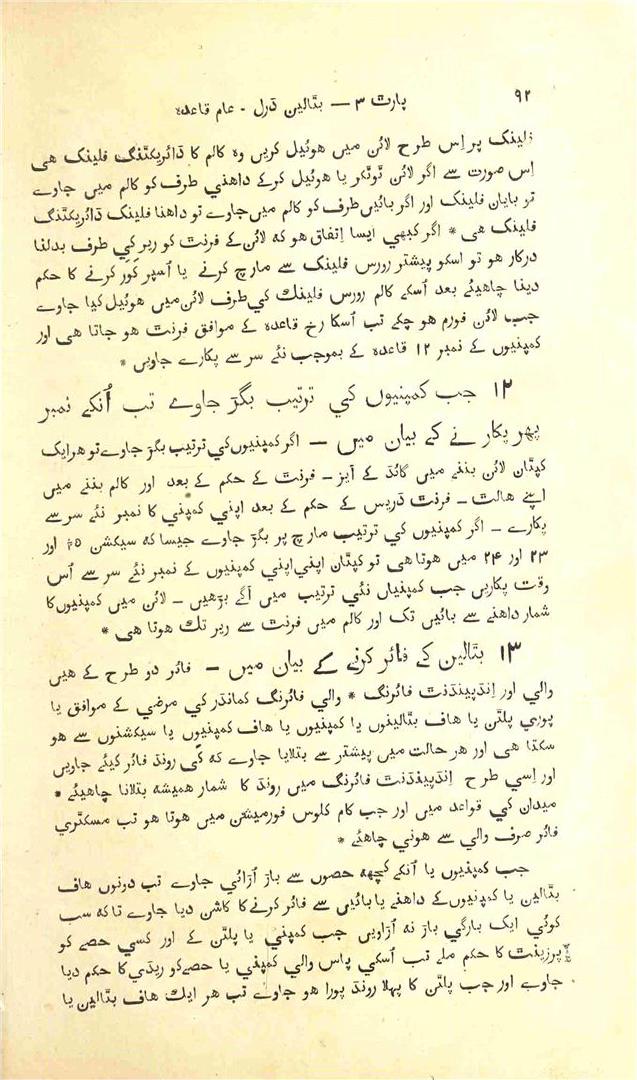 ۹۲
پارٹ ۳ — بٹالین ڈرل - عام قاعدہ
فلینک پر اِس طرح لائن میں هوئیل کریں وہ کالم کا ڈائریکٹنگ فلینک هی
اِس صورت سے اگر لائن ٹوٹکر یا هوئیل کرکے داهني طرف کو کالم میں جاوے
تو بایاں فلینک اور اگر بائیں طرف کو کالم میں جاوے تو داهنا فلینک ڈائریکٹنگ
فلینک هی * اگر کبهي ایسا اِتفاق هو که لائن کے فرنٹ کو ریر کي طرف بدلنا
درکار هو تو اسکو پیشتر رورس فلینک سے مارچ کرنے یا اُسپر کَوَر کرنے کا حکم
دینا چاهیئے بعد اُسکے کالم رورس فلینك کي طرف لائن میں هوئیل کیا جاوے
جب لائن فورم هو چکے تب اُسکا رخ قاعدہ کے موافق فرنٹ هو جاتا هی اور
کمپنیوں کے نمبر ۱۲ قاعدہ کے بموجب نئے سر سے پکارے جاویں *
۱۲ جب کمپنیوں کي ترتیب بگڑ جاوے تب اُنکے نمبر
پهر پکارنے کے بیان میں — اگر کمپنیوں کي ترتیب بگڑ جاوے تو هر ایک
کپتان لائن بننے میں گائڈ کے آیز - فرنٹ کے حکم کے بعد اور کالم بننے میں
اپنے هالٹ - فرنٹ ڈریس کے حکم کے بعد اپني کمپني کا نمبر نئے سر سے
پکارے - اگر کمپنیوں کي ترتیب مارچ پر بگڑ جاوے جیسا که سیکشن ۱۵ اور
۲۳ اور ۲۴ میں هوتا هی تو کپتان اپني اپني کمپنیوں کے نمبر نئے سر سے اُس
وقت پکاریں جب کمپنیاں نئي ترتیب میں آگے بڑهیں - لائن میں کمپنیوں کا
شمار داهنے سے بائیں تک اور کالم میں فرنٹ سے ریر تك هوتا هی *
۱۳ بٹالین کے فائر کرنے کے بیان میں - فائر دو طرح کے هیں
والي اور اِنڈیپینڈنٹ فائرنگ * والي فائرنگ کمانڈر کي مرضي کے موافق یا
پوري پلٹن یا هاف بٹالینوں یا کمپنیوں یا هاف کمپنیوں یا سیکشنوں سے هو
سکتا هی اور هر حالت میں پیشتر سے بتلایا جاوے که کَی روند فائر کیئے جاویں
اور اِسي طرح اِنڈیپینڈنٹ فائرنگ میں روند کا شمار همیشه بتلانا چاهیئے *
میدان کي قواعد میں اور جب کام کلوس فورمیشن میں هوتا هو تب مسکٹري
فائر صرف والي سے هوني چاهئے *
جب کمپنیوں یا اُنکے کچهه حصوں سے باڑ اُڑائي جاوے تب دونوں هاف
بٹالین یا کمپنیوں کے داهنے یا بائیں سے فائر کرنے کا کاشن دیا جاوے تا که سب
کوئي ایک بارگي باڑ نه اُڑاویں جب کمپني یا پلٹن کے اور کسي حصے کو
پرزینٹ کا حکم ملے تب اُسکي پاس والي کمپني یا حصے کو ریڈي کا حکم دیا
جاوے اور جب پلٹن کا پہلا روند پورا هو جاوے تب هر ایك هاف بٹالین یا